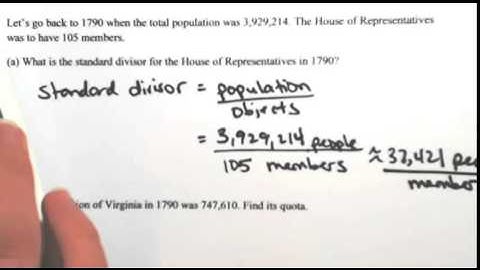 Let's go back to 1790 when the total population was 3,929,214. The House of Representatives
was to have 105 members.
(a) What is the standard divisor for the House of Representatives in 1790?
standard divisor = population
objects
= 3,929,214 people
105 members
≈ 37,421 peo
member
ion of Virginia in 1790 was 747,610. Find its quota.